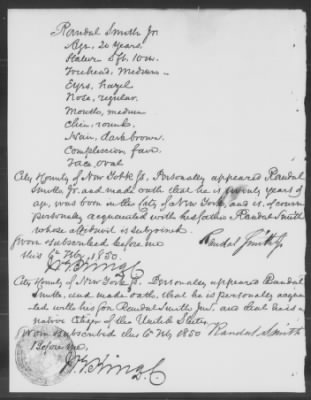 Randal Smith Jr
Age. 20 years.
Stature 5 ft. 10 in.
Forehead, Medium
Eyes, hazel
Nose, regular.
Mouth, medium
Chin, round.
Hair, dark brown.
Complexion fair.
Face oval
City & County of New York Ss. Personally appeared Randal
Smith Jr. and made oath that he is twenty years of
age, was born in the City of New York, and is, of course
personally acquainted with his father Randal Smith
whose affidavit is subjoined.
Sworn & subscribed before me
Randal Smith Jr
this 6th Feby, 1850.
City & County of New York Ss. Personally appeared Randal
Smith, and made oath, that he is personally acquainted
with his son Randal Smith Jnr. and that he is a
native Citizen of the United States.
Sworn & subscribed this 6th Feby 1850
Randal Smith
Before me,